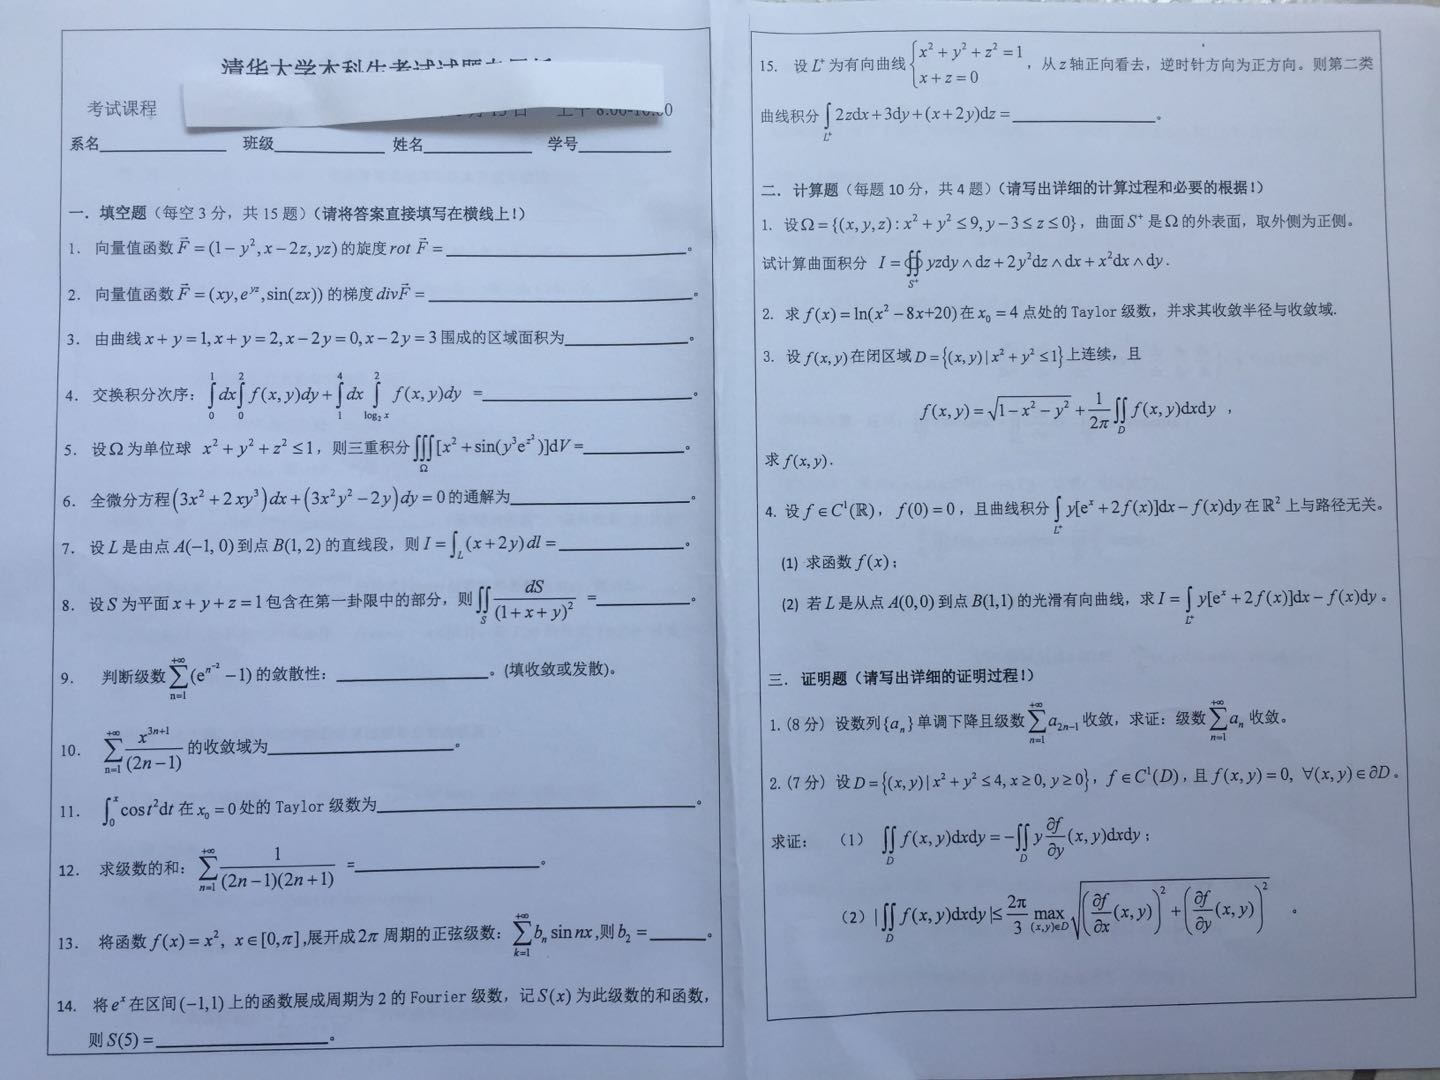 清华大学本科生考试试题专用纸
考试课程
系名 班级 姓名 学号
一．填空题（每空 3 分，共 15 题）（请将答案直接填写在横线上！）
1. 向量值函数 $\vec{F}=(1-y^2,x-2z,yz)$ 的旋度 $rot\ \vec{F}=$ ______。
2. 向量值函数 $\vec{F}=(xy,e^{yz},\sin(zx))$ 的梯度 $div\vec{F}=$ ______。
3. 由曲线 $x+y=1,x+y=2,x-2y=0,x-2y=3$ 围成的区域面积为______。
4. 交换积分次序：$\int_0^1 dx\int_0^2 f(x,y)dy+\int_1^4 dx\int_{\log_2 x}^2 f(x,y)dy$ =______。
5. 设 $\Omega$ 为单位球 $x^2+y^2+z^2\le 1$，则三重积分 $\iiint_\Omega [x^2+\sin(y^3e^{z^2})]dV=$______。
6. 全微分方程 $(3x^2+2xy^3)dx+(3x^2y^2-2y)dy=0$ 的通解为______。
7. 设 $L$ 是由点 $A(-1,0)$ 到点 $B(1,2)$ 的直线段，则 $I=\int_L (x+2y)dl=$ ______。
8. 设 $S$ 为平面 $x+y+z=1$ 包含在第一卦限中的部分，则 $\iint_S \frac{dS}{(1+x+y)^2}$ =______。
9. 判断级数 $\sum_{n=1}^{+\infty}(e^{n^{-2}}-1)$ 的敛散性：______。(填收敛或发散)。
10. $\sum_{n=1}^{+\infty}\frac{x^{3n+1}}{(2n-1)}$ 的收敛域为______。
11. $\int_0^x \cos t^2 dt$ 在 $x_0=0$ 处的 Taylor 级数为______。
12. 求级数的和：$\sum_{n=1}^{+\infty}\frac{1}{(2n-1)(2n+1)}$ =______。
13. 将函数 $f(x)=x^2,\ x\in[0,\pi]$,展开成 $2\pi$ 周期的正弦级数：$\sum_{k=1}^{+\infty}b_n\sin nx$,则 $b_2=$______。
14. 将 $e^x$ 在区间 $(-1,1)$ 上的函数展成周期为 2 的 Fourier 级数，记 $S(x)$ 为此级数的和函数，
则 $S(5)=$______。
15. 设 $L^+$ 为有向曲线 $\begin{cases}x^2+y^2+z^2=1\\x+z=0\end{cases}$，从 $z$ 轴正向看去，逆时针方向为正方向。则第二类
曲线积分 $\int_{L^+}2zdx+3dy+(x+2y)dz=$______。
二．计算题（每题 10 分，共 4 题）（请写出详细的计算过程和必要的根据！）
1. 设 $\Omega=\{(x,y,z):x^2+y^2\le 9,y-3\le z\le 0\}$，曲面 $S^+$ 是 $\Omega$ 的外表面，取外侧为正侧。
试计算曲面积分 $I=\oiint_{S^+}yzdy\wedge dz+2y^2dz\wedge dx+x^2dx\wedge dy$.
2. 求 $f(x)=\ln(x^2-8x+20)$ 在 $x_0=4$ 点处的 Taylor 级数，并求其收敛半径与收敛域.
3. 设 $f(x,y)$ 在闭区域 $D=\{(x,y)|x^2+y^2\le 1\}$ 上连续，且
$f(x,y)=\sqrt{1-x^2-y^2}+\frac{1}{2\pi}\iint_D f(x,y)dxdy$，
求 $f(x,y)$.
4. 设 $f\in C^1(\mathbb{R})$，$f(0)=0$，且曲线积分 $\int_{L^+}y[e^x+2f(x)]dx-f(x)dy$ 在 $\mathbb{R}^2$ 上与路径无关。
(1) 求函数 $f(x)$；
(2) 若 $L$ 是从点 $A(0,0)$ 到点 $B(1,1)$ 的光滑有向曲线，求 $I=\int_{L^+}y[e^x+2f(x)]dx-f(x)dy$。
三．证明题（请写出详细的证明过程！）
1. (8 分) 设数列 $\{a_n\}$ 单调下降且级数 $\sum_{n=1}^{+\infty}a_{2n-1}$ 收敛，求证：级数 $\sum_{n=1}^{+\infty}a_n$ 收敛。
2. (7 分) 设 $D=\{(x,y)|x^2+y^2\le 4,x\ge 0,y\ge 0\}$，$f\in C^1(D)$，且 $f(x,y)=0,\ \forall(x,y)\in\partial D$。
求证：（1） $\iint_D f(x,y)dxdy=-\iint_D y\frac{\partial f}{\partial y}(x,y)dxdy$；
（2）$|\iint_D f(x,y)dxdy|\le\frac{2\pi}{3}\max_{(x,y)\in D}\sqrt{\left(\frac{\partial f}{\partial x}(x,y)\right)^2+\left(\frac{\partial f}{\partial y}(x,y)\right)^2}$。